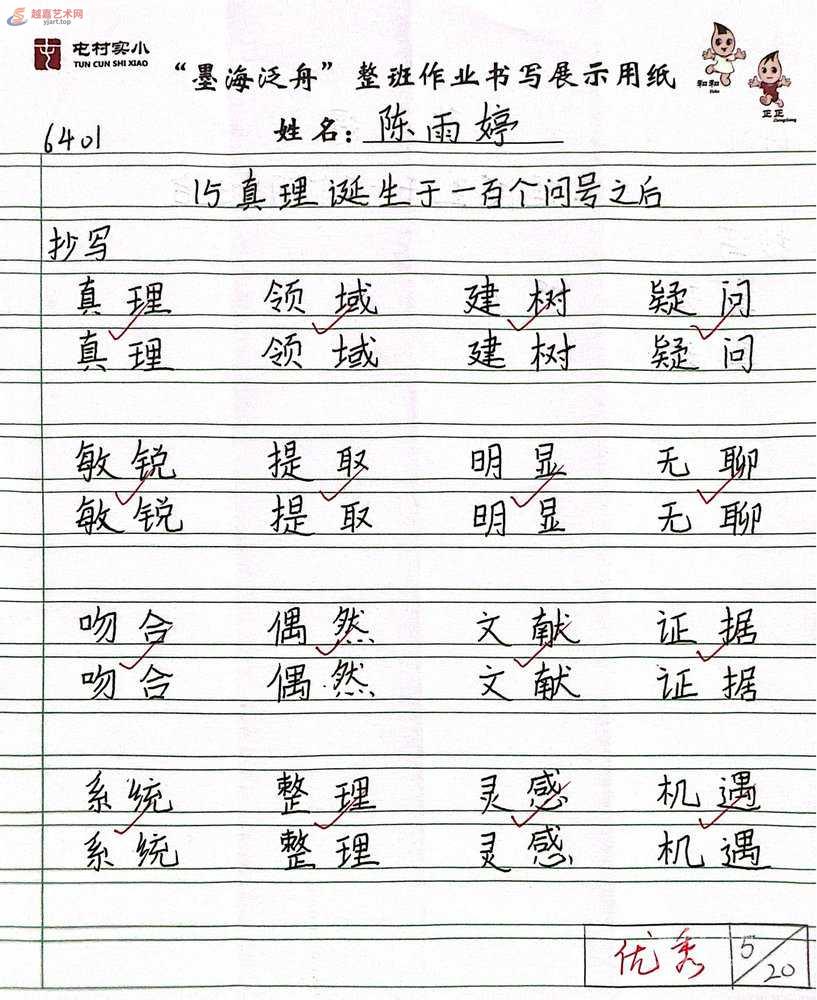 越嘉艺术网
yjart.top
屯村实小
TUN CUN SHI XIAO
“墨海泛舟”整班作业书写展示用纸
和和
正正
6401
姓名：陈雨婷
15真理诞生于一百个问号之后
抄写
真理 领域 建树 疑问
真理 领域 建树 疑问
敏锐 提取 明显 无聊
敏锐 提取 明显 无聊
吻合 偶然 文献 证据
吻合 偶然 文献 证据
系统 整理 灵感 机遇
系统 整理 灵感 机遇
优秀 5/20